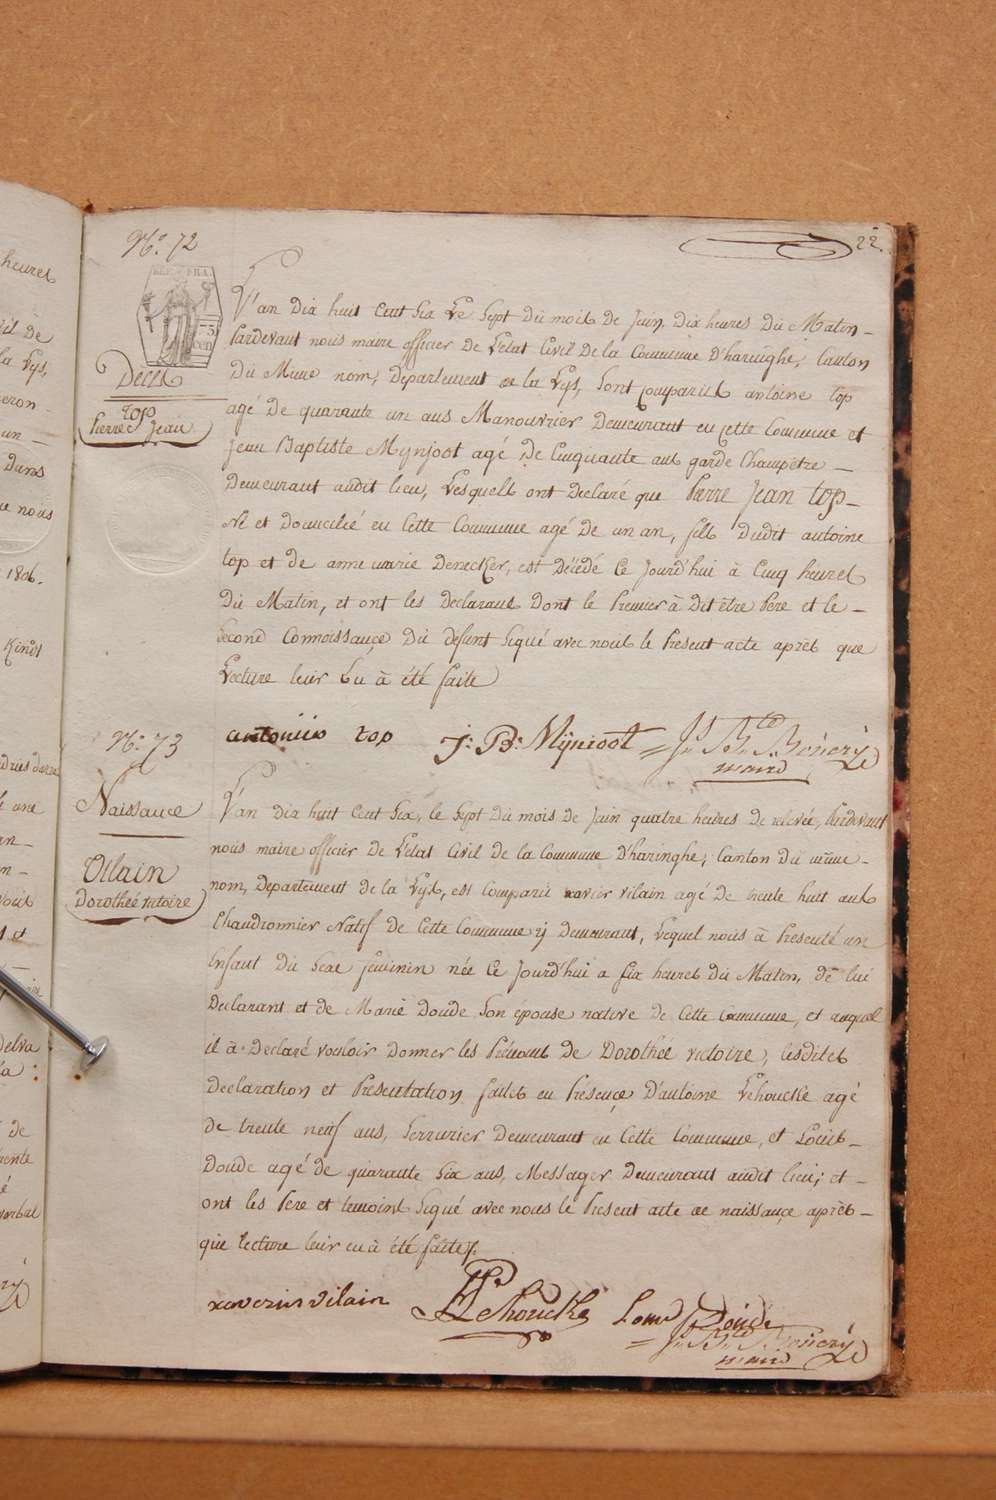 22.
N.o 72
REP. FRA.
75
cen
Decès
top
Pierre Jean
L'an dix huit Cent Six Le Sept du mois de Juin, dix heures du Matin -
Pardevant nous maire officier de L'etat Civil de la Commune d'haringhe, Canton
du Même nom, Departement de la Lys, Sont comparus antoine top
agé de quarante un ans Manouvrier demeurant en cette Commune et
Jean Baptiste Mynjoot agé de Cinquante ans garde Champêtre -
demeurant audit lieu, Lesquels ont declaré que Pierre Jean top -
Né et domicilié en Cette Commune agé de un an, fils dudit antoine
top et de anne marie Denecker, est décédé Ce Jourd'hui à Cinq heures
du Matin, et ont les declarans dont le Premier à dit être Pere et le -
Second Connoissance du defunt Signé avec nous le Present acte après que
Lecture leur En à été faite
antoniis top J: B: Mijnioot
maire
N.o 73
Naissance
Vilain
Dorothée victoire
L'an dix huit Cent Six, le Sept du mois de Juin quatre heures de relevée, Pardevant
nous maire officier de L'etat Civil de la Commune d'haringhe, Canton du même -
nom, Departement de la Lys, est Comparu xavier vilain agé de trente huit ans
Chaudronnier Natif de Cette Commune ij demeurant, Lequel nous à Presenté un
Enfant du Sexe feminin née Ce Jourd'hui a Six heures du Matin, de lui
Declarant et de Marie Doude Son épouse native de Cette Commune, et auquel
il à declaré vouloir donner les Prénoms de Dorothée victoire, lesdites
declaration et Presentation faites en Presence d'antoine Lehoucke agé
de trente neuf ans, Serrurier demeurant en Cette Commune, et Louis -
Doude agé de quarante Six ans, Messager demeurant audit lieu; et -
ont les Pere et temoins Signé avec nous le Present acte de naissance après -
que lecture leur en à été faite
xaverius vilain Lehoucke
maire
heures
1806.